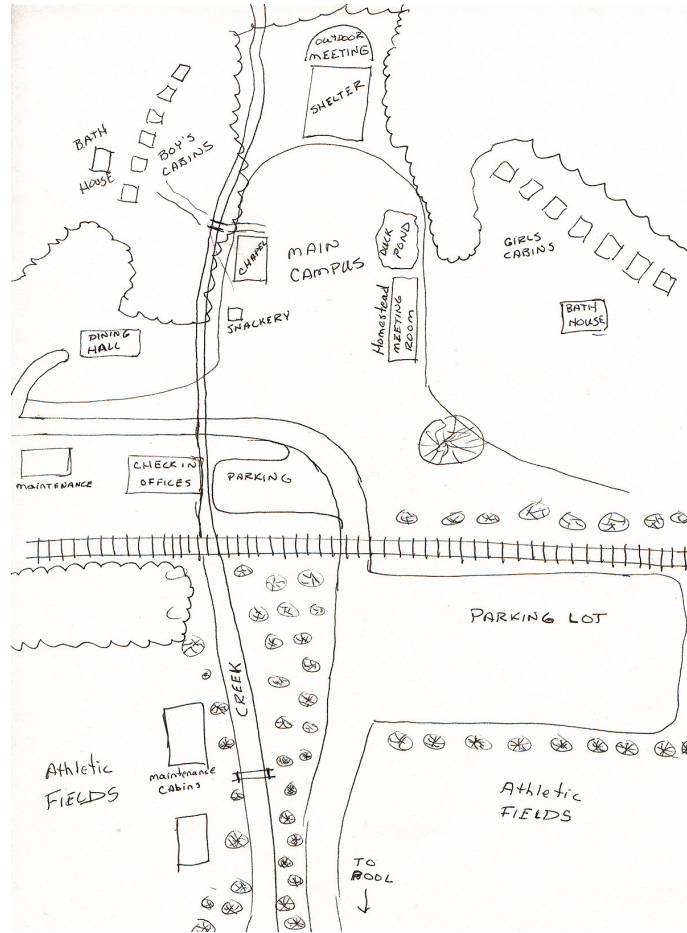 OUTDOOR
MEETING
SHELTER
BATH
HOUSE
BOY'S
CABINS
CHAPEL
MAIN
CAMPUS
DUCK
POND
GIRLS
CABINS
SNACKERY
Homestead
MEETING
ROOM
BATH
HOUSE
DINING
HALL
MAINTENANCE
CHECK IN
OFFICES
PARKING
PARKING LOT
CREEK
Athletic
FIELDS
maintenance
CABINS
Athletic
FIELDS
TO
POOL